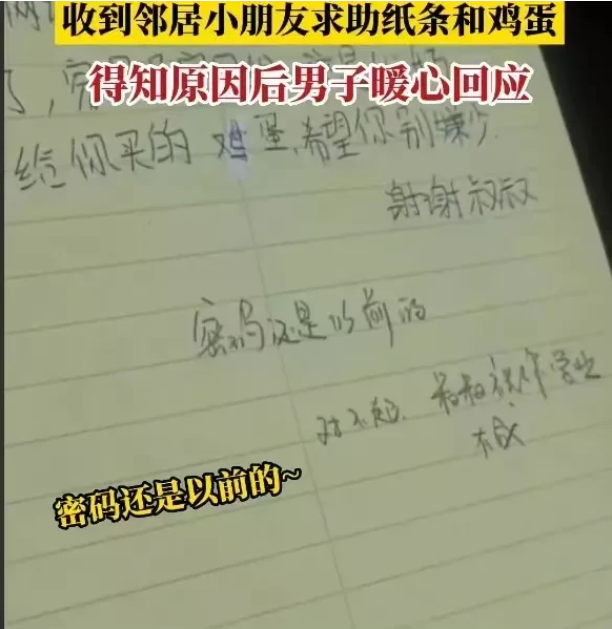 收到邻居小朋友求助纸条和鸡蛋
得知原因后男子暖心回应
了,完
给你买的 鸡蛋,希望你别嫌少
谢谢叔叔
密码还是以前的
对不起. 叔叔祝你学业
密码还是以前的~